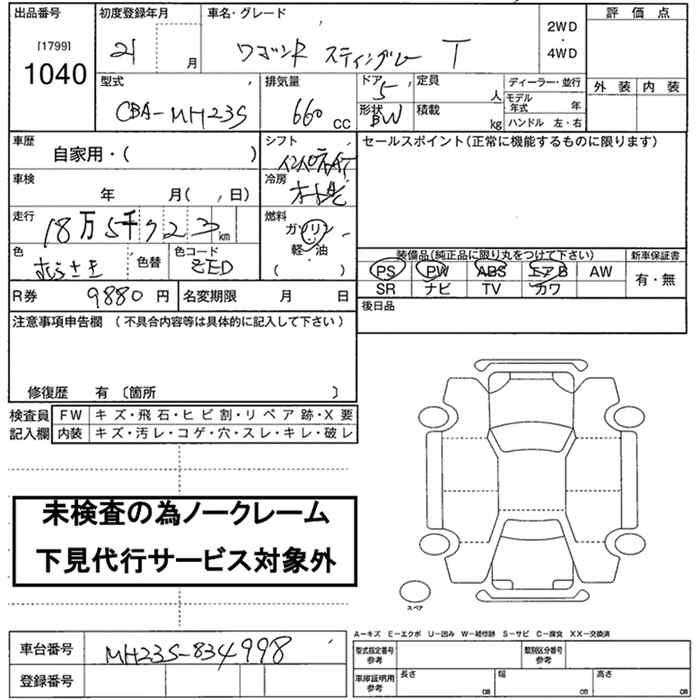 出品番号 初度登録年月 車名・グレード 評価点
[1799] 21 月 ワゴンR スティングレー T 2WD・4WD
1040
型式 排気量 ドア 定員 ディーラー・並行 外装 内装
CBA-MH23S 660 CC 5 人 モデル年式 年
形状 BW 積載 kg ハンドル 左・右
車歴 シフト セールスポイント(正常に機能するものに限ります)
自家用・( ) インパネAT
車検 冷房
年 月( , 日)
走行 燃料
18万5千723km ガソリン
軽・油
( )
色 色替 色コード 装備品(純正品に限り丸をつけて下さい) 新車保証書
むらさき ZED PS PW ABS エアB AW 有・無
SR ナビ TV カワ
R券 9880円 名変期限 月 日 後日品
注意事項申告欄 (不具合内容等は具体的に記入して下さい)
修復歴 有〔箇所 〕
検査員 FW キズ・飛石・ヒビ割・リペア跡・X要
記入欄 内装 キズ・汚レ・コゲ・穴・スレ・キレ・破レ
未検査の為ノークレーム
下見代行サービス対象外
スペア
A−キズ E−エクボ U−凹み W−補修跡 S−サビ C−腐食 XX−交換済
車台番号 MH23S-834998 型式指定番号 参考 類別区分番号 参考
登録番号 車庫証明用 参考 長さ cm 幅 cm 高さ cm